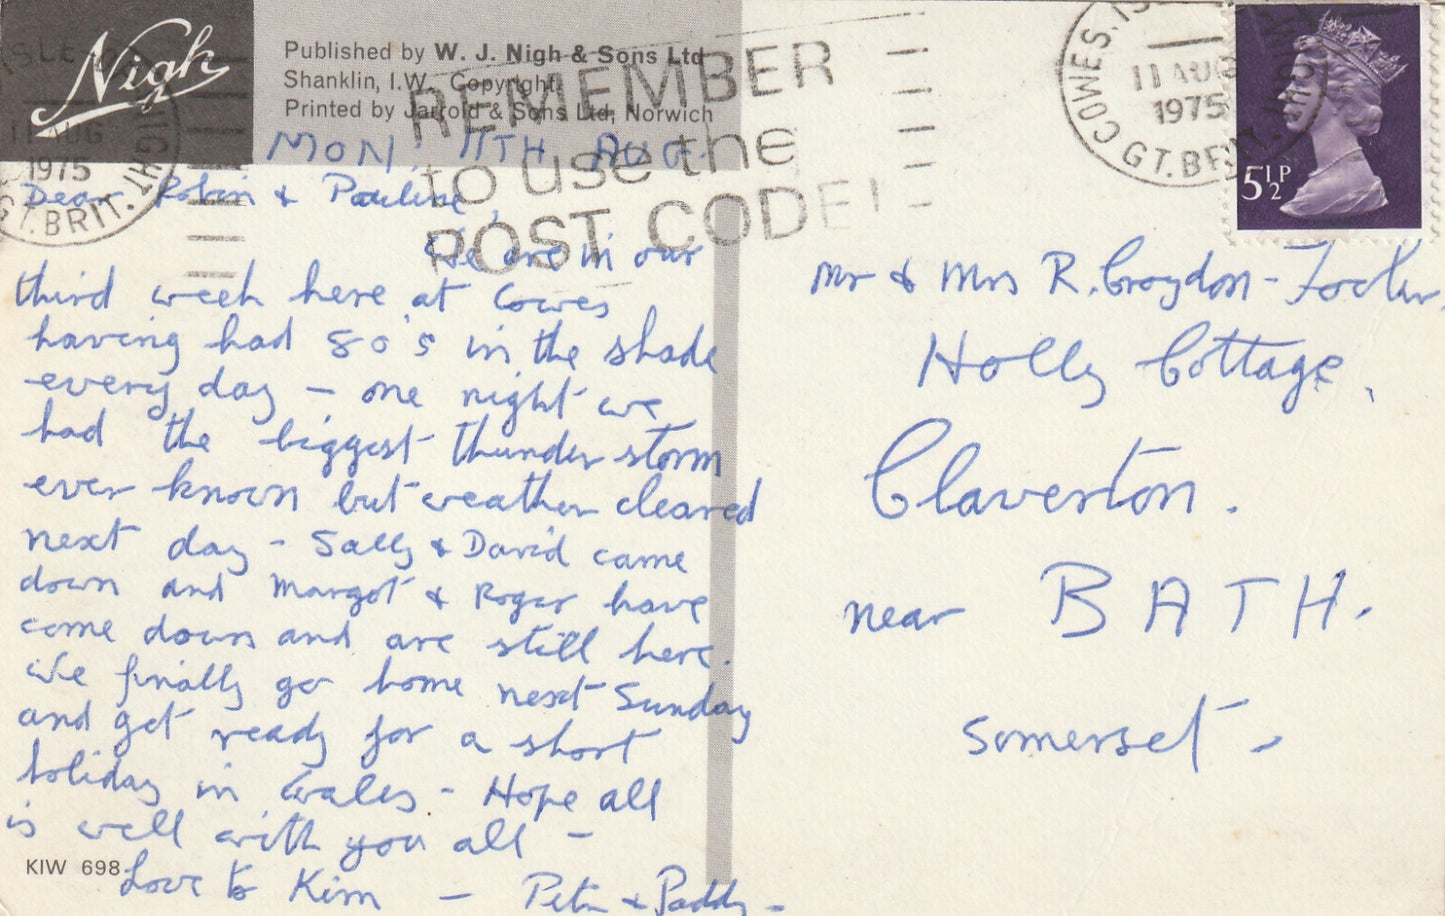 Nigh
Published by W. J. Nigh & Sons Ltd
Shanklin, I.W. Copyright
Printed by Jarrold & Sons Ltd, Norwich
REMEMBER
to use the
POST CODE!
COWES, IS
11 AUG
1975
GT. BRIT.
5½P
11 AUG
1975
GT. BRIT.
MON, 11TH AUG.
Dear Robin & Pauline,
We are in our
third week here at Cowes
having had 80's in the shade
every day – one night we
had the biggest thunder storm
ever known but weather cleared
next day – Sally & David came
down and Margot & Roger have
come down and are still here.
We finally go home next Sunday
and get ready for a short
holiday in Wales – Hope all
is well with you all –
Love to Kim – Peter & Paddy –
KIW 698
Mr & Mrs R. Croydon-Fowler,
Holly Cottage,
Claverton.
near BATH.
Somerset –